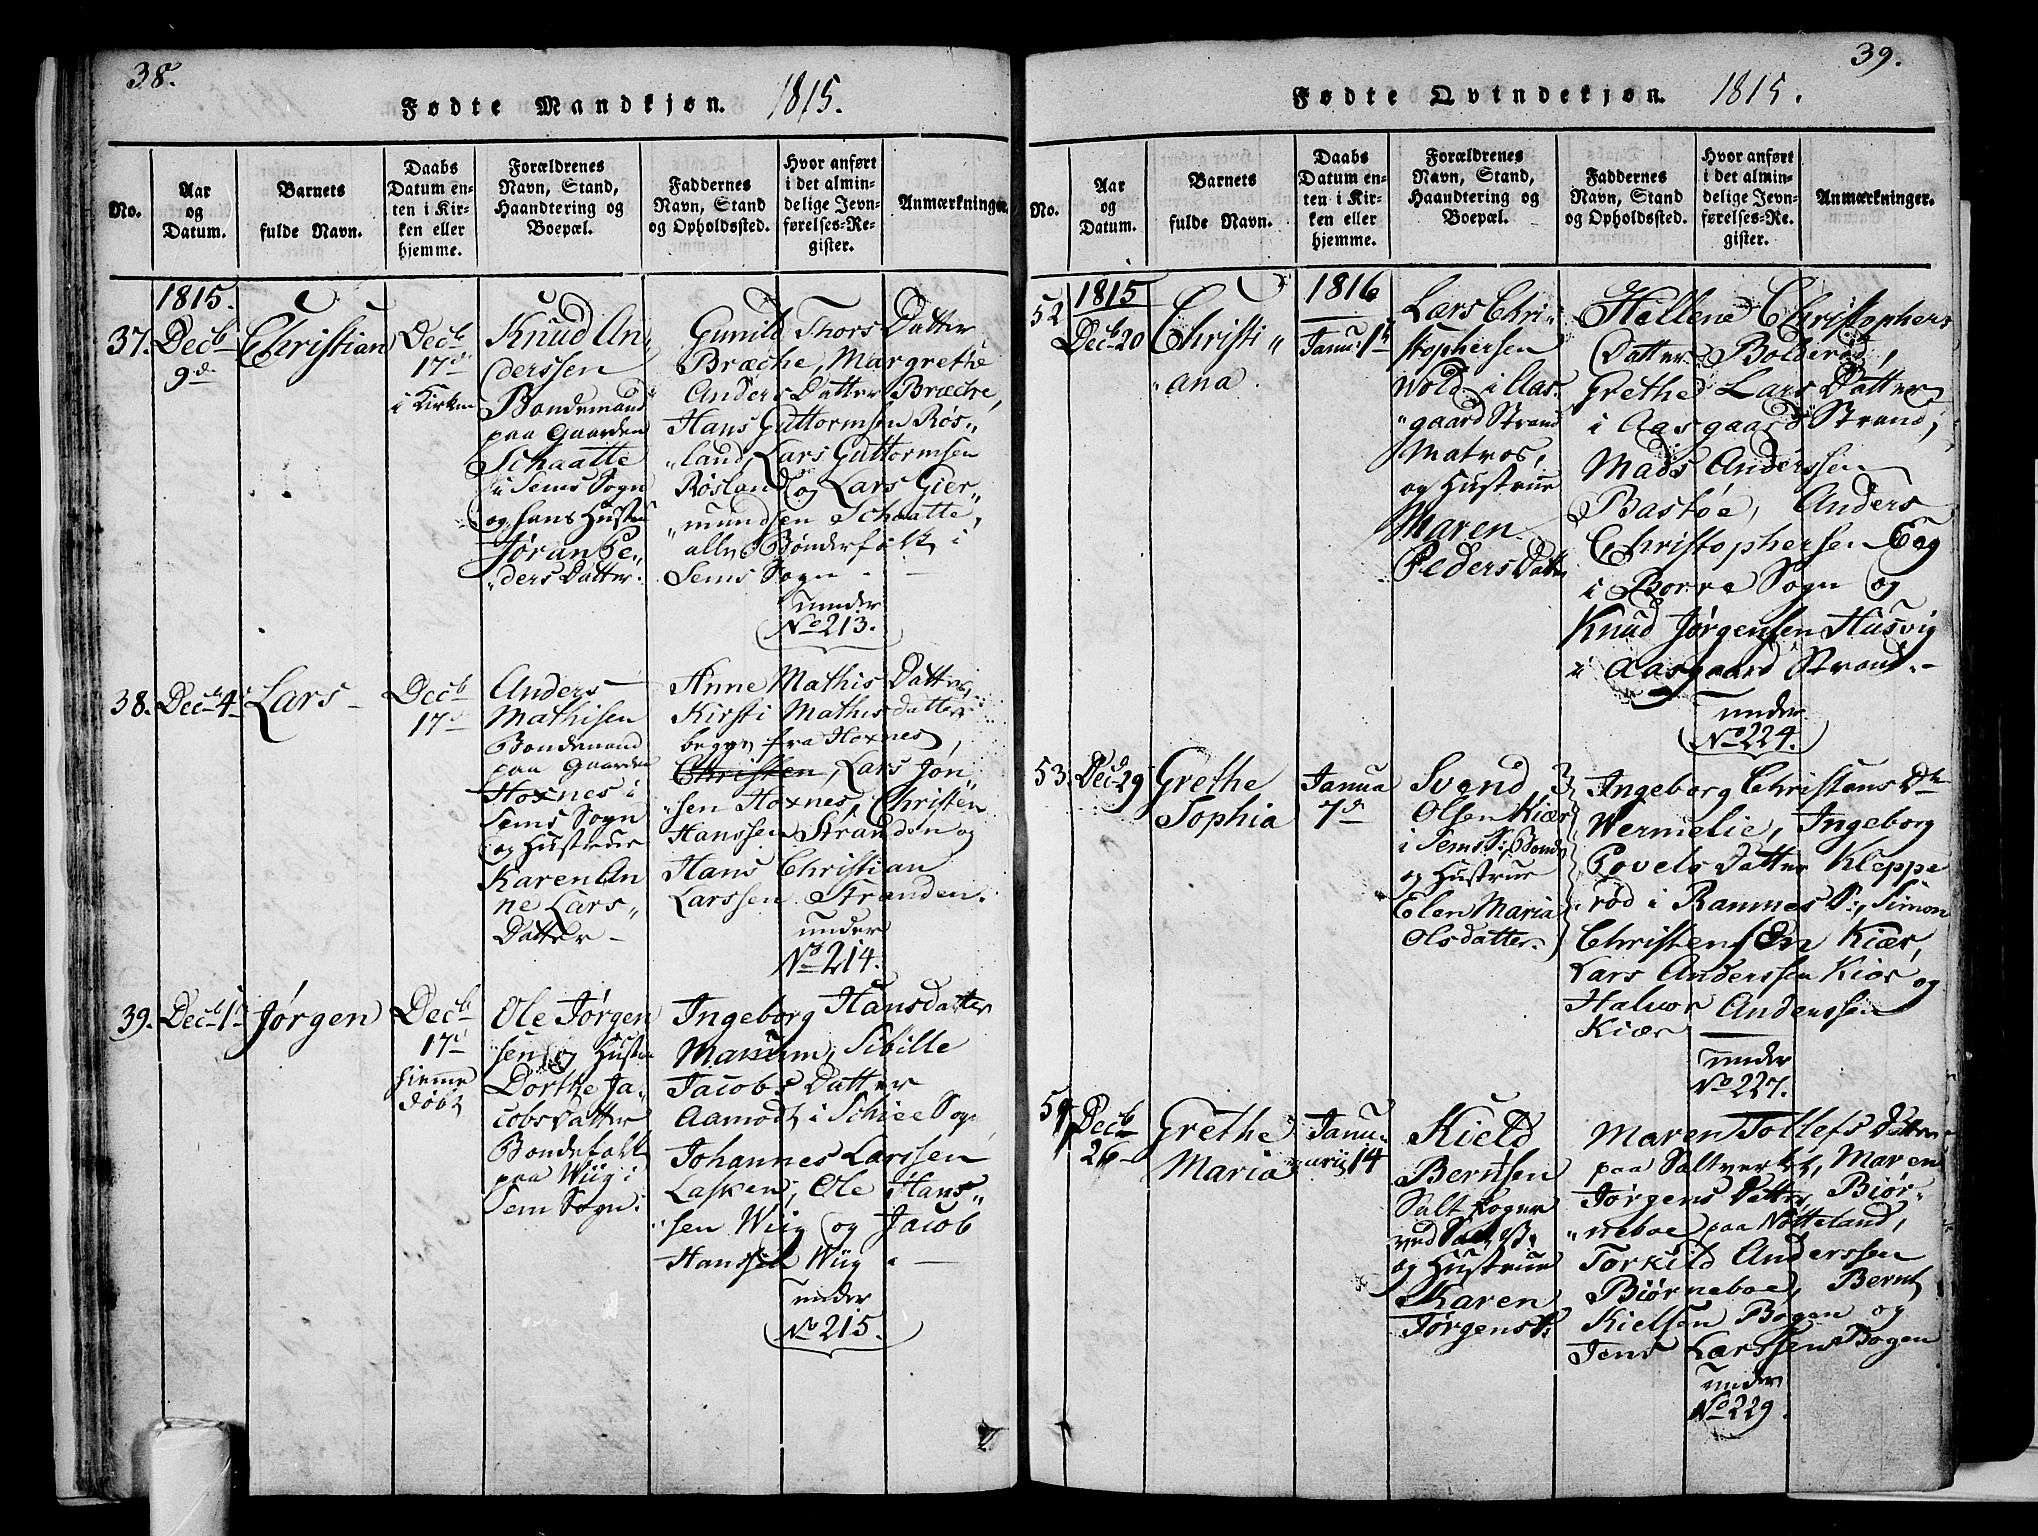 38.
Fødte Mandkjøn. 1815.
No.
Aar
og
Datum.
Barnets
fulde Navn.
Daabs
Datum en-
ten i Kir-
ken eller
hjemme.
Forældrenes
Navn, Stand,
Haandtering og
Boepæl.
Faddernes
Navn, Stand
og Opholdssted.
Hvor anført
i det almin-
delige Jevn-
førelses-Re-
gister.
Anmærkninger.
1815.
37.
Decb
9d
Christian
Decb
17d
i Kirken
Knud An„
derssen
Bondemand
paa Gaarden
Schaatte
i Sems Sogn
og hans Hustru
Jøran Pe„
„ders Datter.
Gunild Thors Datter
Bræche, Margrethe
Anders Datter Bræche,
Hans Guttormsen Røs„
„land, Lars Guttormsen
Røsland og Lars Gier„
„mundsen Schaatte,
alle Bønderfolk i
Sems Sogn -
under
No 213.
38.
Decb 4
Lars
Decb
17d
Anders
Mathisen
Bondemand
paa Gaarden
Hoxnes i
Sems Sogn
og Hustrue
Karen An
ne Lars„
Datter
Anne Mathis Datter,
Kirsti Mathisdatter
begge fra Hoxnes,
Christen, Lars Jon„
„sen Hoxnes, Christen
Hanssen Stranden og
Hans Christian
Larssen Stranden.
under
No 214.
39.
Decb 1
Jørgen
Decb
17d
hiemme
døbt
Ole Jørgen
sen og Hustru
Dorthe Ja„
cobsdatter
Bondefolk
paa Wiig i
Sem Sogn.
Ingeborg Hansdatter
Sibille
Jacobs Datter
Aamodt i Schiee Sogn,
Johannes Larssen
Lasken, Ole Hans„
„sen Wiig og Jacob
Hanssen Wiig
under
No 215.
39.
Fødte Qvindekjøn. 1815.
No.
Aar
og
Datum.
Barnets
fulde Navn.
Daabs
Datum en-
ten i Kir-
ken eller
hjemme.
Forældrenes
Navn, Stand,
Haandtering og
Boepæl.
Faddernes
Navn, Stand
og Opholdssted.
Hvor anført
i det almin-
delige Jevn-
førelses-Re-
gister.
Anmærkninger.
52
1815
Decb 20
Christi„
„ana.
1816
Janu. 1
Lars Chri„
stophersen
Wold i Aas„
„gaard Strand
Matros,
og Hustrue
Maren
Peders Datter
Hellene Christophers
Datter Bolderød,
Grethe Lars Datter
i Aasgaard Strand,
Mads Anderssen
Bastøe, Anders
Christophersen Eeg
i Borre Sogn og
Knud Jørgensen Husvig
i Aasgaard Strand.
under
No 224.
53.
Dec. 29
Grethe
Sophia
Janua
7d
Svend
Olsen Kiær
i Sems S: Bonde
og Hustrue
Elen Maria
Olsdatter.
Ingeborg Christens Dtr
Wermelie, Ingeborg
Povels Datter Kleppe
rød i Ramnes S:, Simon
Christensen Kiær,
Lars Anderssen Kiær og
Halvor Anderssen
Kiær
under
No 227.
54
Decb
26
Grethe
Maria
Janu„
„arij 14
Kield
Berntsen
Salt Koger
ved Salt V:
og Hustrue
Karen
Jørgens D:
Maren Tollefs Datter
paa Saltverket, Maren
Jørgens Datter Biør„
„neboe paa Nøtteland,
Torkild Anderssen
Biørneboe, Bernt
Kielsen Bogen og
Jens Larssen Bogen
under
No 229.